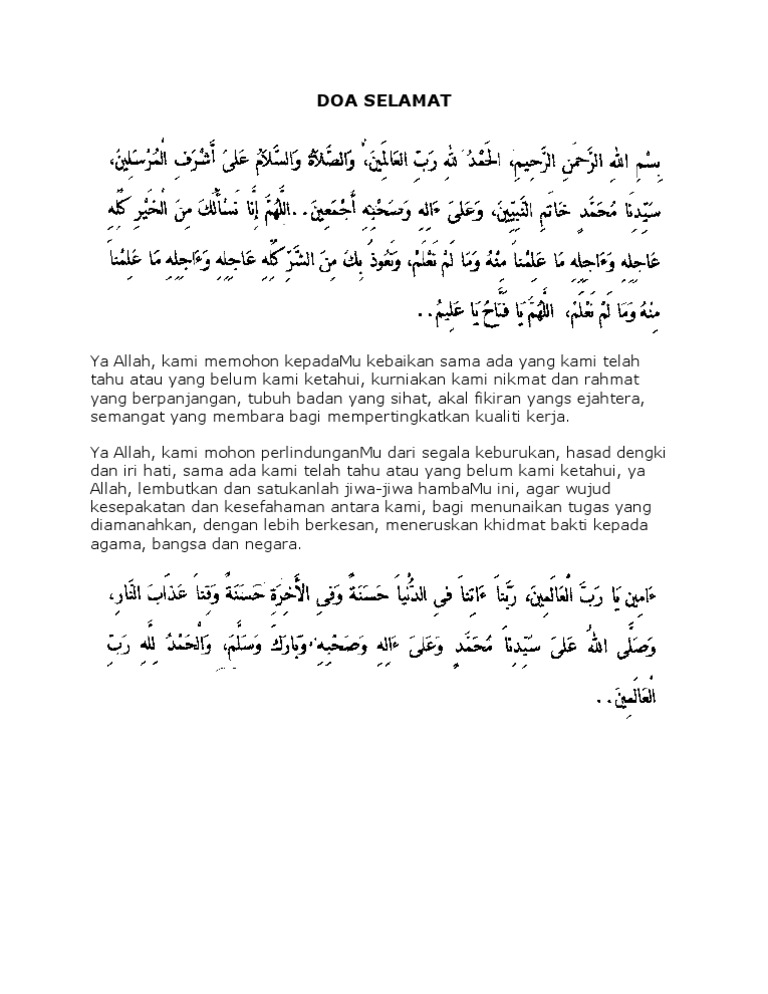 DOA SELAMAT
بِسْمِ اللهِ الرَّحْمٰنِ الرَّحِيمِ، الْحَمْدُ لِلهِ رَبِّ الْعَالَمِينَ، وَالصَّلَاةُ وَالسَّلَامُ عَلَىٰ أَشْرَفِ الْمُرْسَلِينَ،
سَيِّدِنَا مُحَمَّدٍ خَاتَمِ النَّبِيِّينَ، وَعَلَىٰ ءَالِهِ وَصَحْبِهِ أَجْمَعِينَ.. اللَّهُمَّ إِنَّا نَسْأَلُكَ مِنَ الْخَيْرِ كُلِّهِ
عَاجِلِهِ وَءَاجِلِهِ مَا عَلِمْنَا مِنْهُ وَمَا لَمْ نَعْلَمْ، وَنَعُوذُ بِكَ مِنَ الشَّرِّ كُلِّهِ عَاجِلِهِ وَءَاجِلِهِ مَا عَلِمْنَا
مِنْهُ وَمَا لَمْ نَعْلَمْ، اللَّهُمَّ يَا فَتَّاحُ يَا عَلِيمُ..
Ya Allah, kami memohon kepadaMu kebaikan sama ada yang kami telah
tahu atau yang belum kami ketahui, kurniakan kami nikmat dan rahmat
yang berpanjangan, tubuh badan yang sihat, akal fikiran yangs ejahtera,
semangat yang membara bagi mempertingkatkan kualiti kerja.
Ya Allah, kami mohon perlindunganMu dari segala keburukan, hasad dengki
dan iri hati, sama ada kami telah tahu atau yang belum kami ketahui, ya
Allah, lembutkan dan satukanlah jiwa-jiwa hambaMu ini, agar wujud
kesepakatan dan kesefahaman antara kami, bagi menunaikan tugas yang
diamanahkan, dengan lebih berkesan, meneruskan khidmat bakti kepada
agama, bangsa dan negara.
ءَامِين يَا رَبَّ الْعَالَمِينَ، رَبَّنَا ءَاتِنَا فِي الدُّنْيَا حَسَنَةً وَفِي الْأَخِرَةِ حَسَنَةً وَقِنَا عَذَابَ النَّارِ،
وَصَلَّى اللهُ عَلَىٰ سَيِّدِنَا مُحَمَّدٍ وَعَلَىٰ ءَالِهِ وَصَحْبِهِ، وَبَارَكَ وَسَلَّمَ، وَالْحَمْدُ لِلَّهِ رَبِّ
الْعَالَمِينَ..